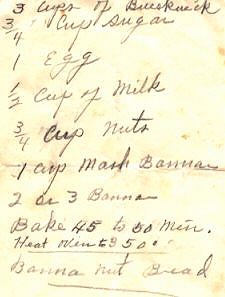 3 Cups of Buisknick
3/4 Cup Sugar
1 Egg
1/2 Cup of Milk
3/4 Cup Nuts
1 Cup Mash Banna
2 or 3 Banna
Bake 45 to 50 Min.
Heat oven to 350°
Banna Nut Bread